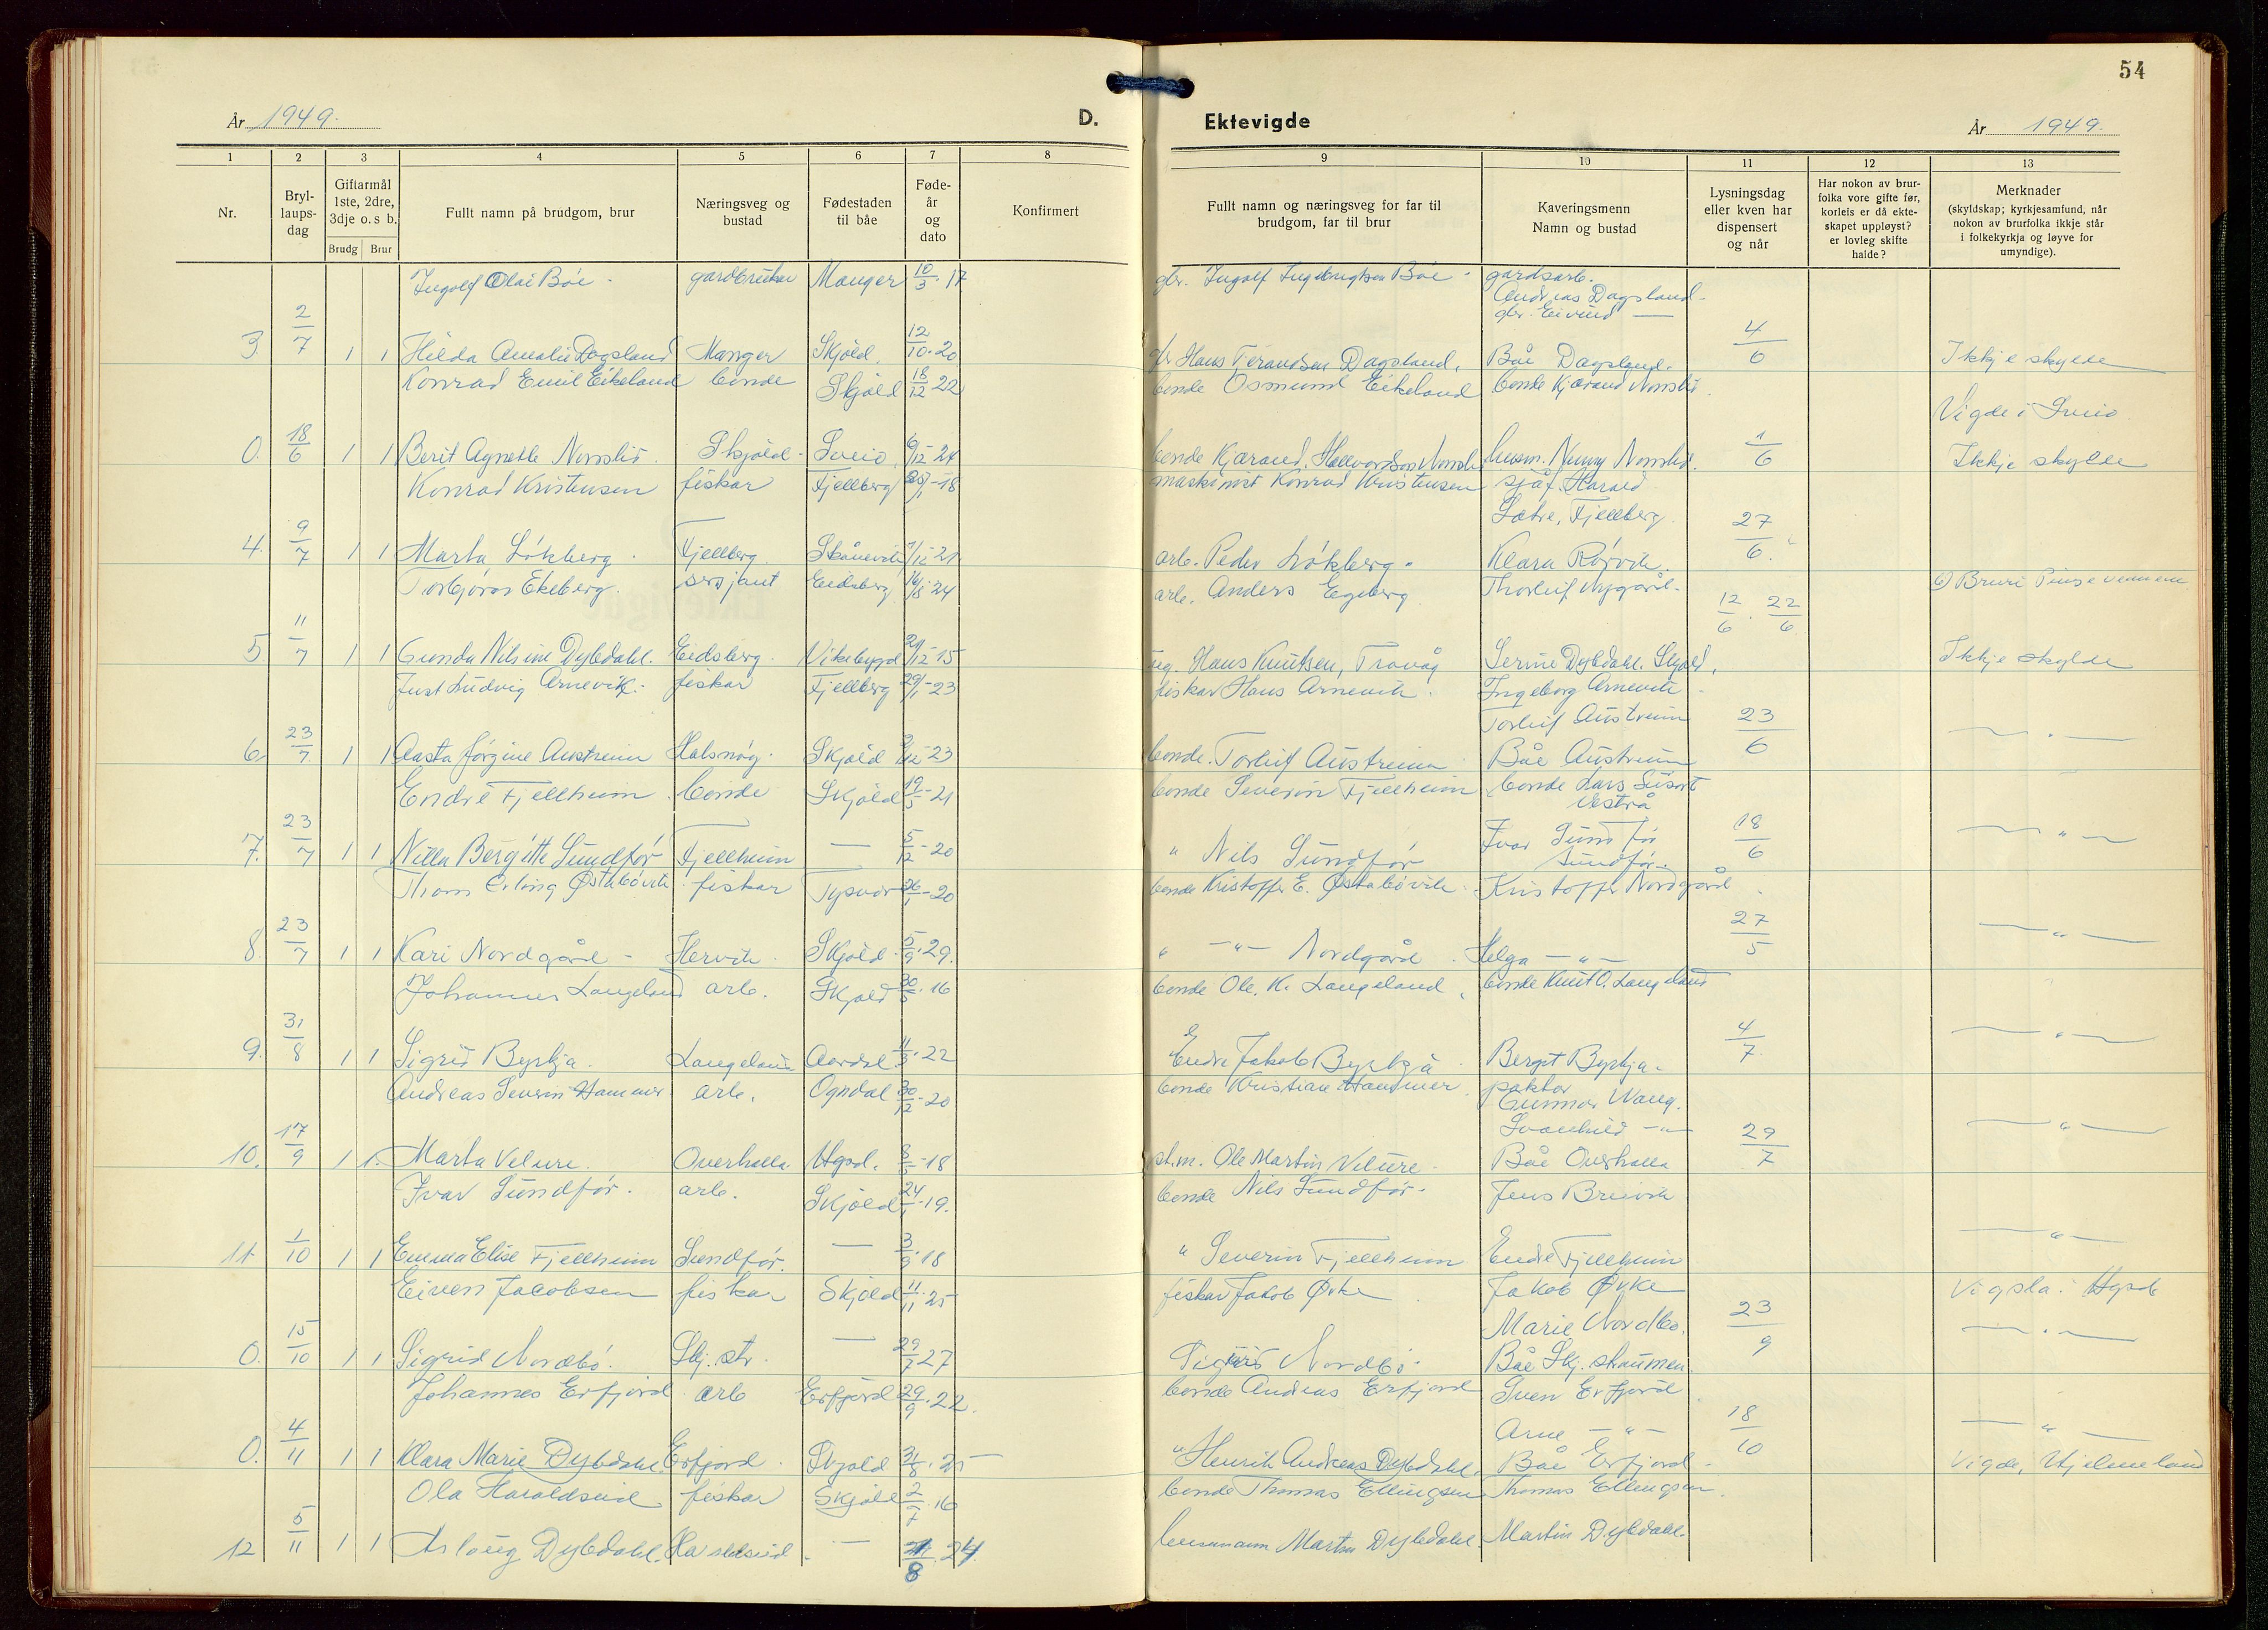 54
År 1949.
D.
Ektevigde
År 1949.
1 2 3 4 5 6 7 8 9 10 11 12 13
Nr.
Bryl-
laups-
dag
Giftarmål
1ste, 2dre,
3dje o. s b.
Brudg Brur
Fullt namn på brudgom, brur
Næringsveg og
bustad
Fødestaden
til båe
Føde-
år
og
dato
Konfirmert
Fullt namn og næringsveg for far til
brudgom, far til brur
Kaveringsmenn
Namn og bustad
Lysningsdag
eller kven har
dispensert
og når
Har nokon av brur-
folka vore gifte før,
korleis er då ekte-
skapet uppløyst?
er lovleg skifte
halde?
Merknader
(skyldskap; kyrkjesamfund, når
nokon av brurfolka ikkje står
i folkekyrkja og løyve for
umyndige).
Ingolf Olai Bøe gardbrukar Manger 10/3-17 gbr. Ingolf Bøe gardsarb.
Andreas Dagsland
gbr. Eivind —
3. 2/7 1 1 Hilda Amalie Dagsland Manger Skjold 12/10-20 Hans Dagsland. Båe Dagsland. 4/6 Ikkje skylde
Konrad Emil Eikeland bonde Skjold 18/12-22 bonde Osmund Eikeland bonde Kjærand
Vigde i Sveio
0. 18/6 1 1 Berit Agnethe Skjold Sveio 6/12-24 bonde Kjærand 1/6 Ikkje skylde
Konrad Kristensen fiskar Fjellberg -18 maskinist Konrad Kristensen sjåf. Harald
Sætre, Fjellberg
4. 9/7 1 1 Marta Løkberg Fjellberg Skånevik -21 arb. Peder Løkberg Klara Rørvik. 27/6.
Torbjørn Ekeberg. sersjant Eidsberg -24 arb. Anders Egeberg Thorleif Nygård.
5. 11/7 1 1 Gunda Nilsine Dybdahl. Eidsberg. Vikebygd -15 Hans Knutsen, Trovåg Serine Dybdahl. Skjold. 12/6 . 22/6 Ikkje skylde
Just Ludvig Arnevik. fiskar Fjellberg 29/1-23 fiskar Hans Arnevik. Ingeborg Arnevik
Torleif Austreim
6. 23/7 1 1 Aasta Jørgine Austreim Halsnøy. Skjold -23 bonde. Torleif Austreim Båe Austreim 23/6 — " —
Endre Fjellheim bonde Skjold 19/5-21 bonde Severin Fjellheim bonde Lars
7. 23/7 1 1 Nilla Bergitte Sundfør Fjellheim — 5/12-20 " Nils Sundfør Ivar Sundfør
Sundfør. 18/6 — " —
Thom Erling Østabøvik fiskar Tysvær 26/1-20 bonde Kristoffer E. Østabøvik Kristoffer Nordgård
8. 23/7 1 1 Kari Nordgård Hervik Skjold 5/9-29. " —"— Nordgård. Helga —"— 27/5 — " —
Johannes Langeland arb. Skjold 30/5-16 bonde Ole. K. Langeland bonde Knut O. Langeland
9. 31/8 1 1 Sigrid Byrkja. Langeland Aardal 11/3-22 Endre Jakob Byrkja Bergit Byrkja 4/7. — " —
Andreas Severin Hammer arb. Ogndal 30/12-20 bonde Kristian Hammer
Gunnar Wang.
Svanhild —"—
10. 17/9 1 1. Marta Velure. Overhalla Hgsd. -18 Ole Martin Velure. Båe Overhalla 29/7 — " —
Ivar Sundfør. arb. Skjold 24/1-19. bonde Nils Sundfør. Jens Breivik
11. 1/10 1 1 Emma Elise Fjellheim Sundfør. — 3/9-18 " Severin Fjellheim Endre Fjellheim — " —
Eiven Jacobsen fiskar Skjold 11/11-25 fiskar Jakob Øke Jakob Økke Vigsla i Hgsd
Marie Nordbø.
0. 15/10 1 1 Sigrid Nordbø. Skj. str. — 29/7 27 Nordbø. Båe Skj. straumen 23/9 — " —
Johannes Erfjord arb Erfjord 29/9-22. bonde Andreas Erfjord Sven Erfjord
Arne —"—
0. 4/11 1 1 Klara Marie Dybdahl. Erfjord. Skjold 31/8.25 — " Henrik Andreas Dybdahl. Båe Erfjord. 18/10 — " —
Vigde, Hjelmeland
Ola Haraldseid fiskar Skjold 2/7-16 bonde Thomas Ellingsen Thomas Ellingsen.
12 5/11 1 1 Aslaug Dybdahl. Haraldseid. — /8 .24 lensmann Martin Dybdahl. Martin Dybdahl.